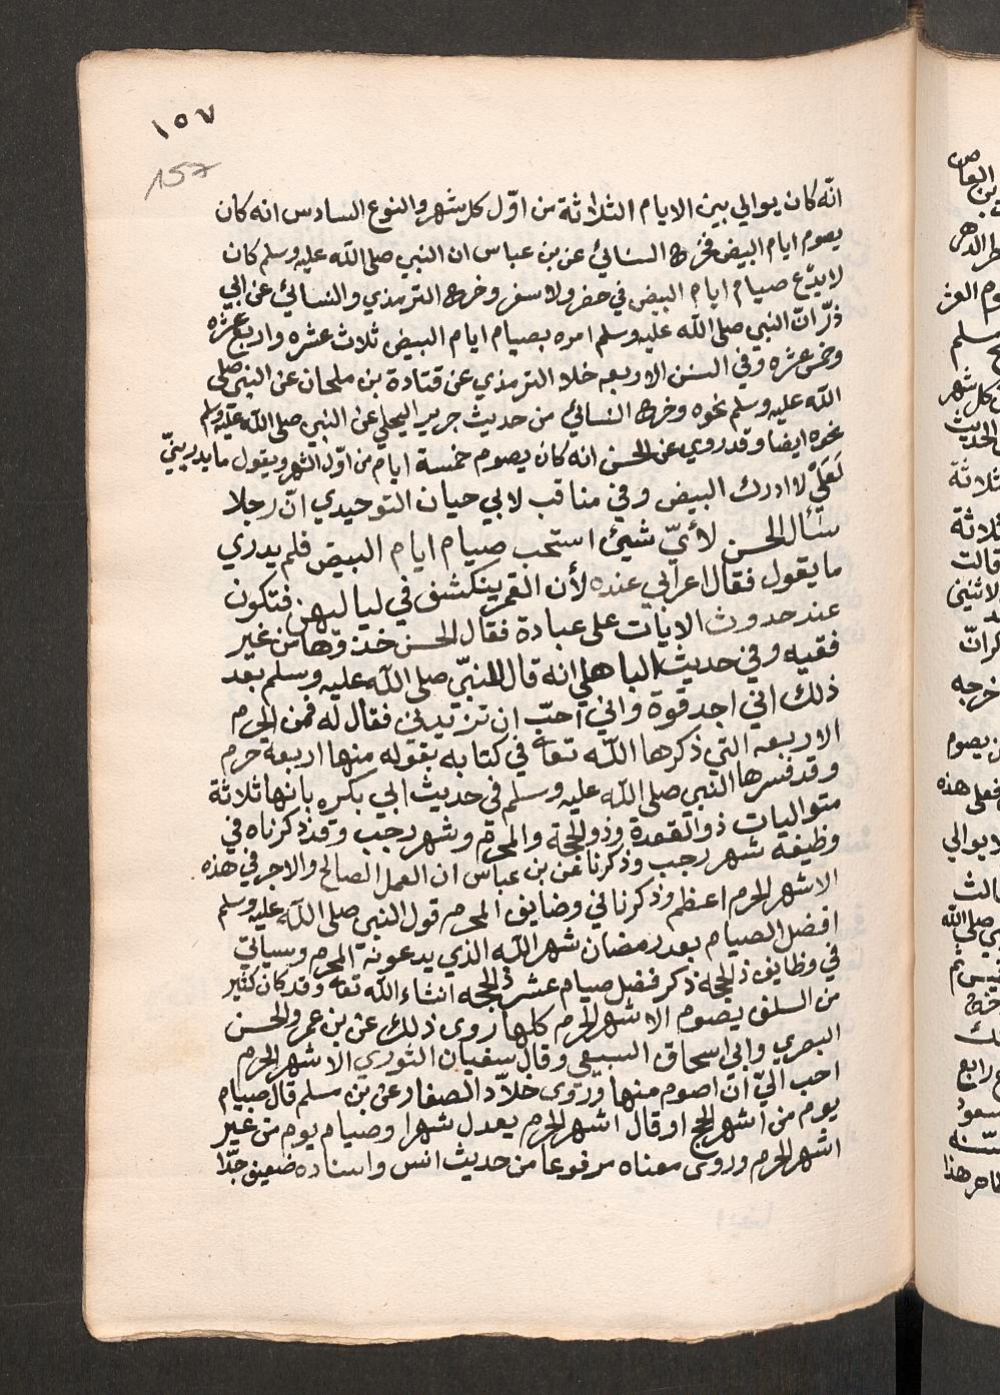 ١٥٧
157
انّه كان يوالي بين الايام الثلاثة من اوّل كل شهر والنوع السادس انه كان
يصوم ايام البيض فخرج النسائي عن بن عباس ان النبي صلى الله عليه وسلم كان
لا يدّع صيام ايام البيض في حضر ولا سفر وخرج الترمذي والنسائي عن ابي
ذرّ انّ النبي صلى الله عليه وسلم امره بصيام ايام البيض ثلاث عشره واربع عشره
وخمس عشره وفي السنن الاربعه خلا الترمذي عن قتادة بن ملحان عن النبي صلى
الله عليه وسلم نحوه وخرج النسائي من حديث جرير البجلي عن النبي صلى الله عليه وسلم
نحوه ايضا وقد روي عن الحسن انه كان يصوم خمسة ايام من اوّل الشهر ويقول ما يدريني
لعلّي لا ادرك البيض وفي مناقب لابي حيان التوحيدي انّ رجلا
سأل الحسن لأيّ شيئ استحب صيام ايام البيض فلم يدري
ما يقول فقال اعرابي عنده لأن القمر ينكشف في لياليهن فتكون
عند حدوث الايات على عبادة فقال الحسن خذوّها من غير
فقيه وفي حديث الباهلي انه قال للنبيّ صلى الله عليه وسلم بعد
ذلك اني اجد قوة واني احبّ ان تزيدني فقال له فمن الحرم
الاربعه التي ذكرها الله تعا في كتابه بقوله منها اربعة حرم
وقد فسرها النبي صلى الله عليه وسلم في حديث ابي بكره بانها ثلاثة
متواليات ذو القعدة وذو الحجة والمحرم وشهر رجب وقد ذكرناه في
وظيفة شهر رجب وذكرنا عن بن عباس ان العمل الصالح والاجر في هذه
الاشهر الحرم اعظم وذكرنا في وضايف المحرم قول النبي صلى الله عليه وسلم
افضل الصيام بعد رمضان شهر الله الذي يدعونه المحرم وسياتي
في وظايف ذ لحجه ذكر فضل صيام عشر ذ لحجه انشاء الله تعا وقد كان كثير
من السلف يصوم الاشهر الحرم كلها روى ذلك عن بن عمر والحسن
البصري وابي اسحاق السبيعي وقال سفيان الثوري الاشهر الحرم
احب اليّ ان اصوم منها وروى خلّاد الصفار عن بن مسلم قال صيام
يوم من اشهر الحج او قال اشهر الحرم يعدل شهرا وصيام يوم من غير
اشهر الحرم وروى معناه مرفوعا من حديث انس واسناده ضعيف جدّا